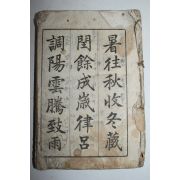 暑往秋收冬藏
閏餘成歲律呂
調陽雲騰致雨